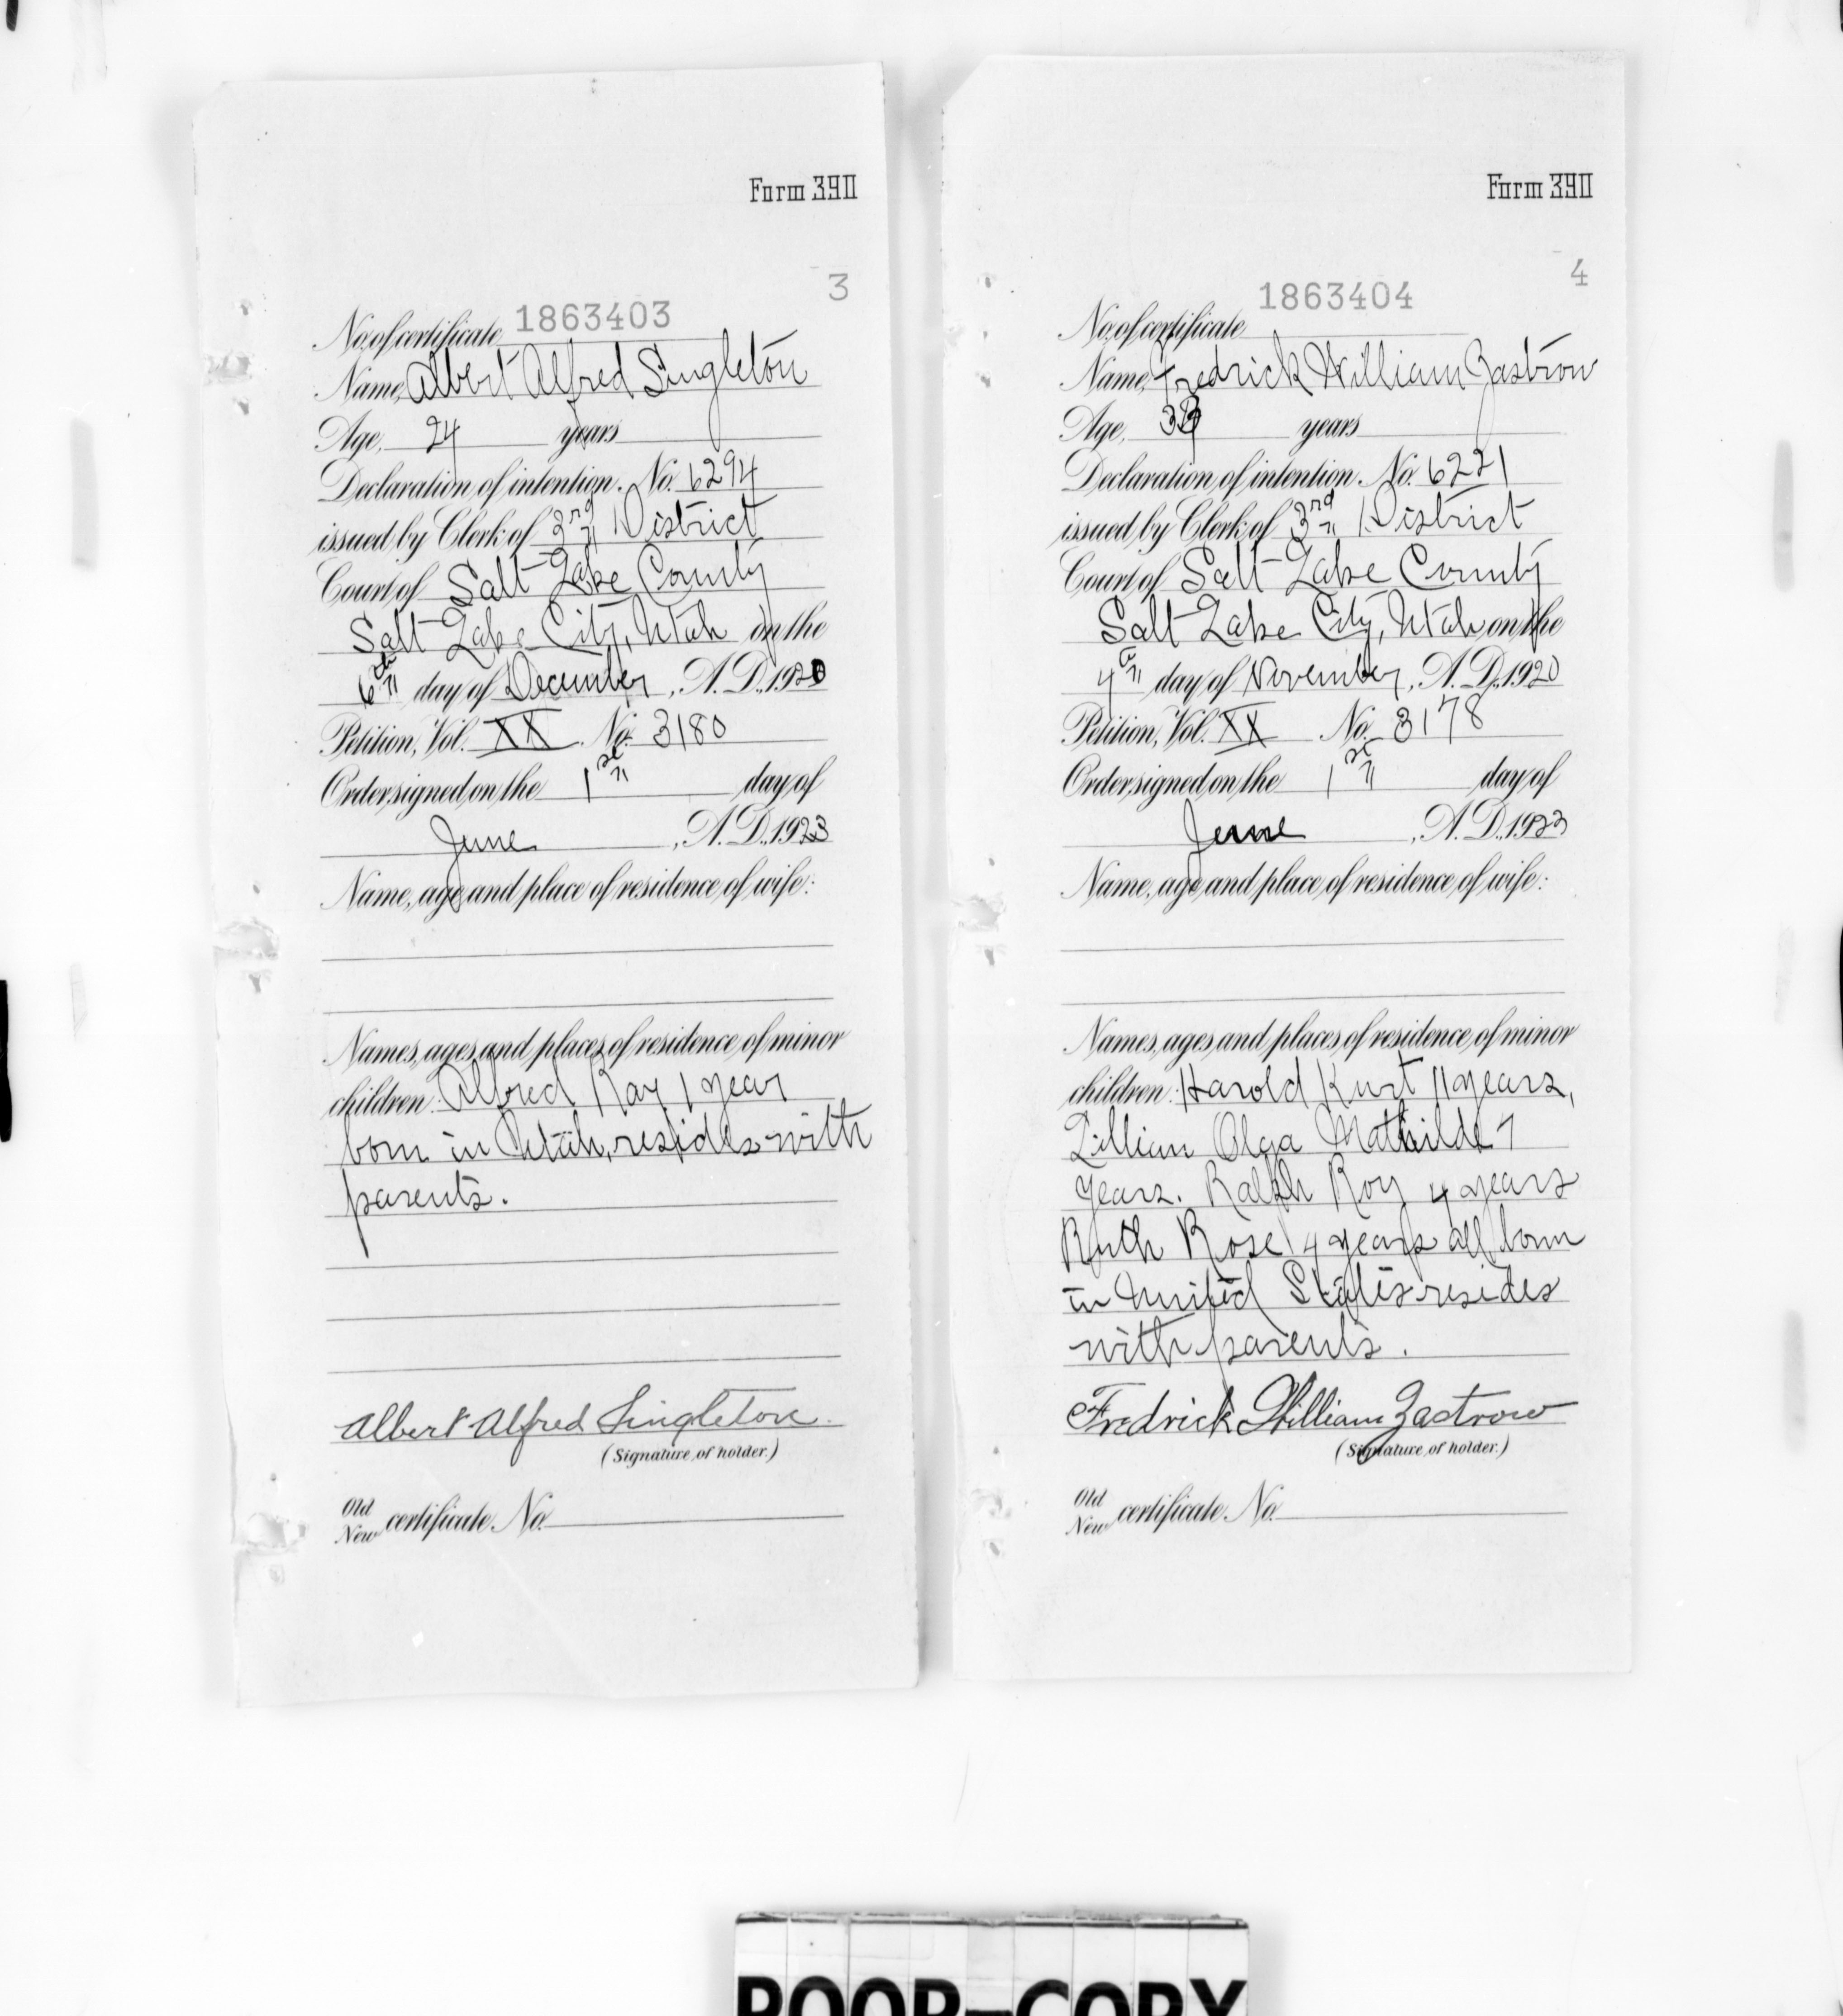 Form 390
3
No. of certificate 1863403
Name, Albert Alfred Singleton
Age, 24 years
Declaration of intention. No. 6294
issued by Clerk of 3rd District
Court of Salt Lake County
Salt Lake City, Utah on the
6th day of December, A. D., 1920
Petition, Vol. XX. No. 3180
Order signed on the 1st day of
June, A. D., 1923
Name, age and place of residence of wife:
Names, ages and places of residence of minor
children: Alfred Ray 1 year
born in Utah, resides with
parents.
Albert Alfred Singleton.
(Signature of holder.)
Old
New certificate No.
Form 390
4
No. of certificate 1863404
Name, Fredrick William Zastrow
Age, years
Declaration of intention. No. 6221
issued by Clerk of 3rd District
Court of Salt Lake County
Salt Lake City, Utah on the
4th day of November, A. D., 1920
Petition, Vol. XX No. 3178
Order signed on the 1st day of
June, A. D., 1923
Name, age and place of residence of wife:
Names, ages and places of residence of minor
children: Harold Kurt 11 years,
Lillian Olga Mathilde 7
years. Ralph Roy 4 years
Ruth Rose 4 years all born
in United States resides
with parents.
Fredrick William Zastrow
(Signature of holder.)
Old
New certificate No.
POOR-COPY